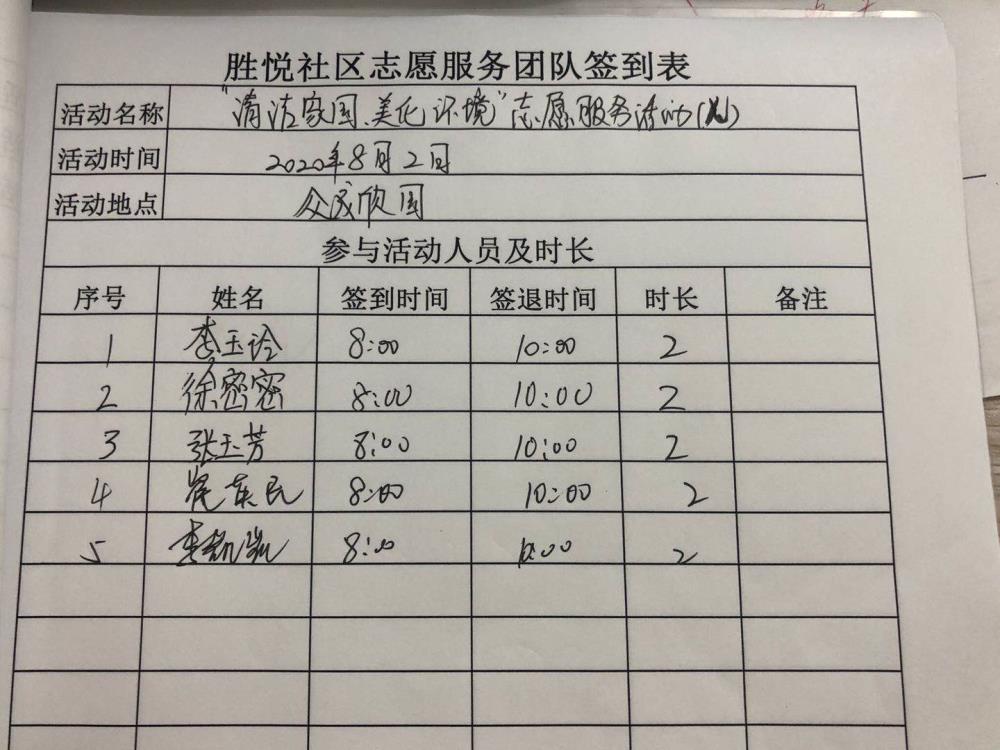 胜悦社区志愿服务团队签到表
活动名称 "清洁家园、美化环境"志愿服务活动
活动时间 2020年8月2日
活动地点 众成欣园
参与活动人员及时长
序号 姓名 签到时间 签退时间 时长 备注
1 李玉玲 8:00 10:00 2
2 徐密密 8:00 10:00 2
3 张玉芳 8:00 10:00 2
4 崔东民 8:00 10:00 2
5 李凯凯 8:00 10:00 2